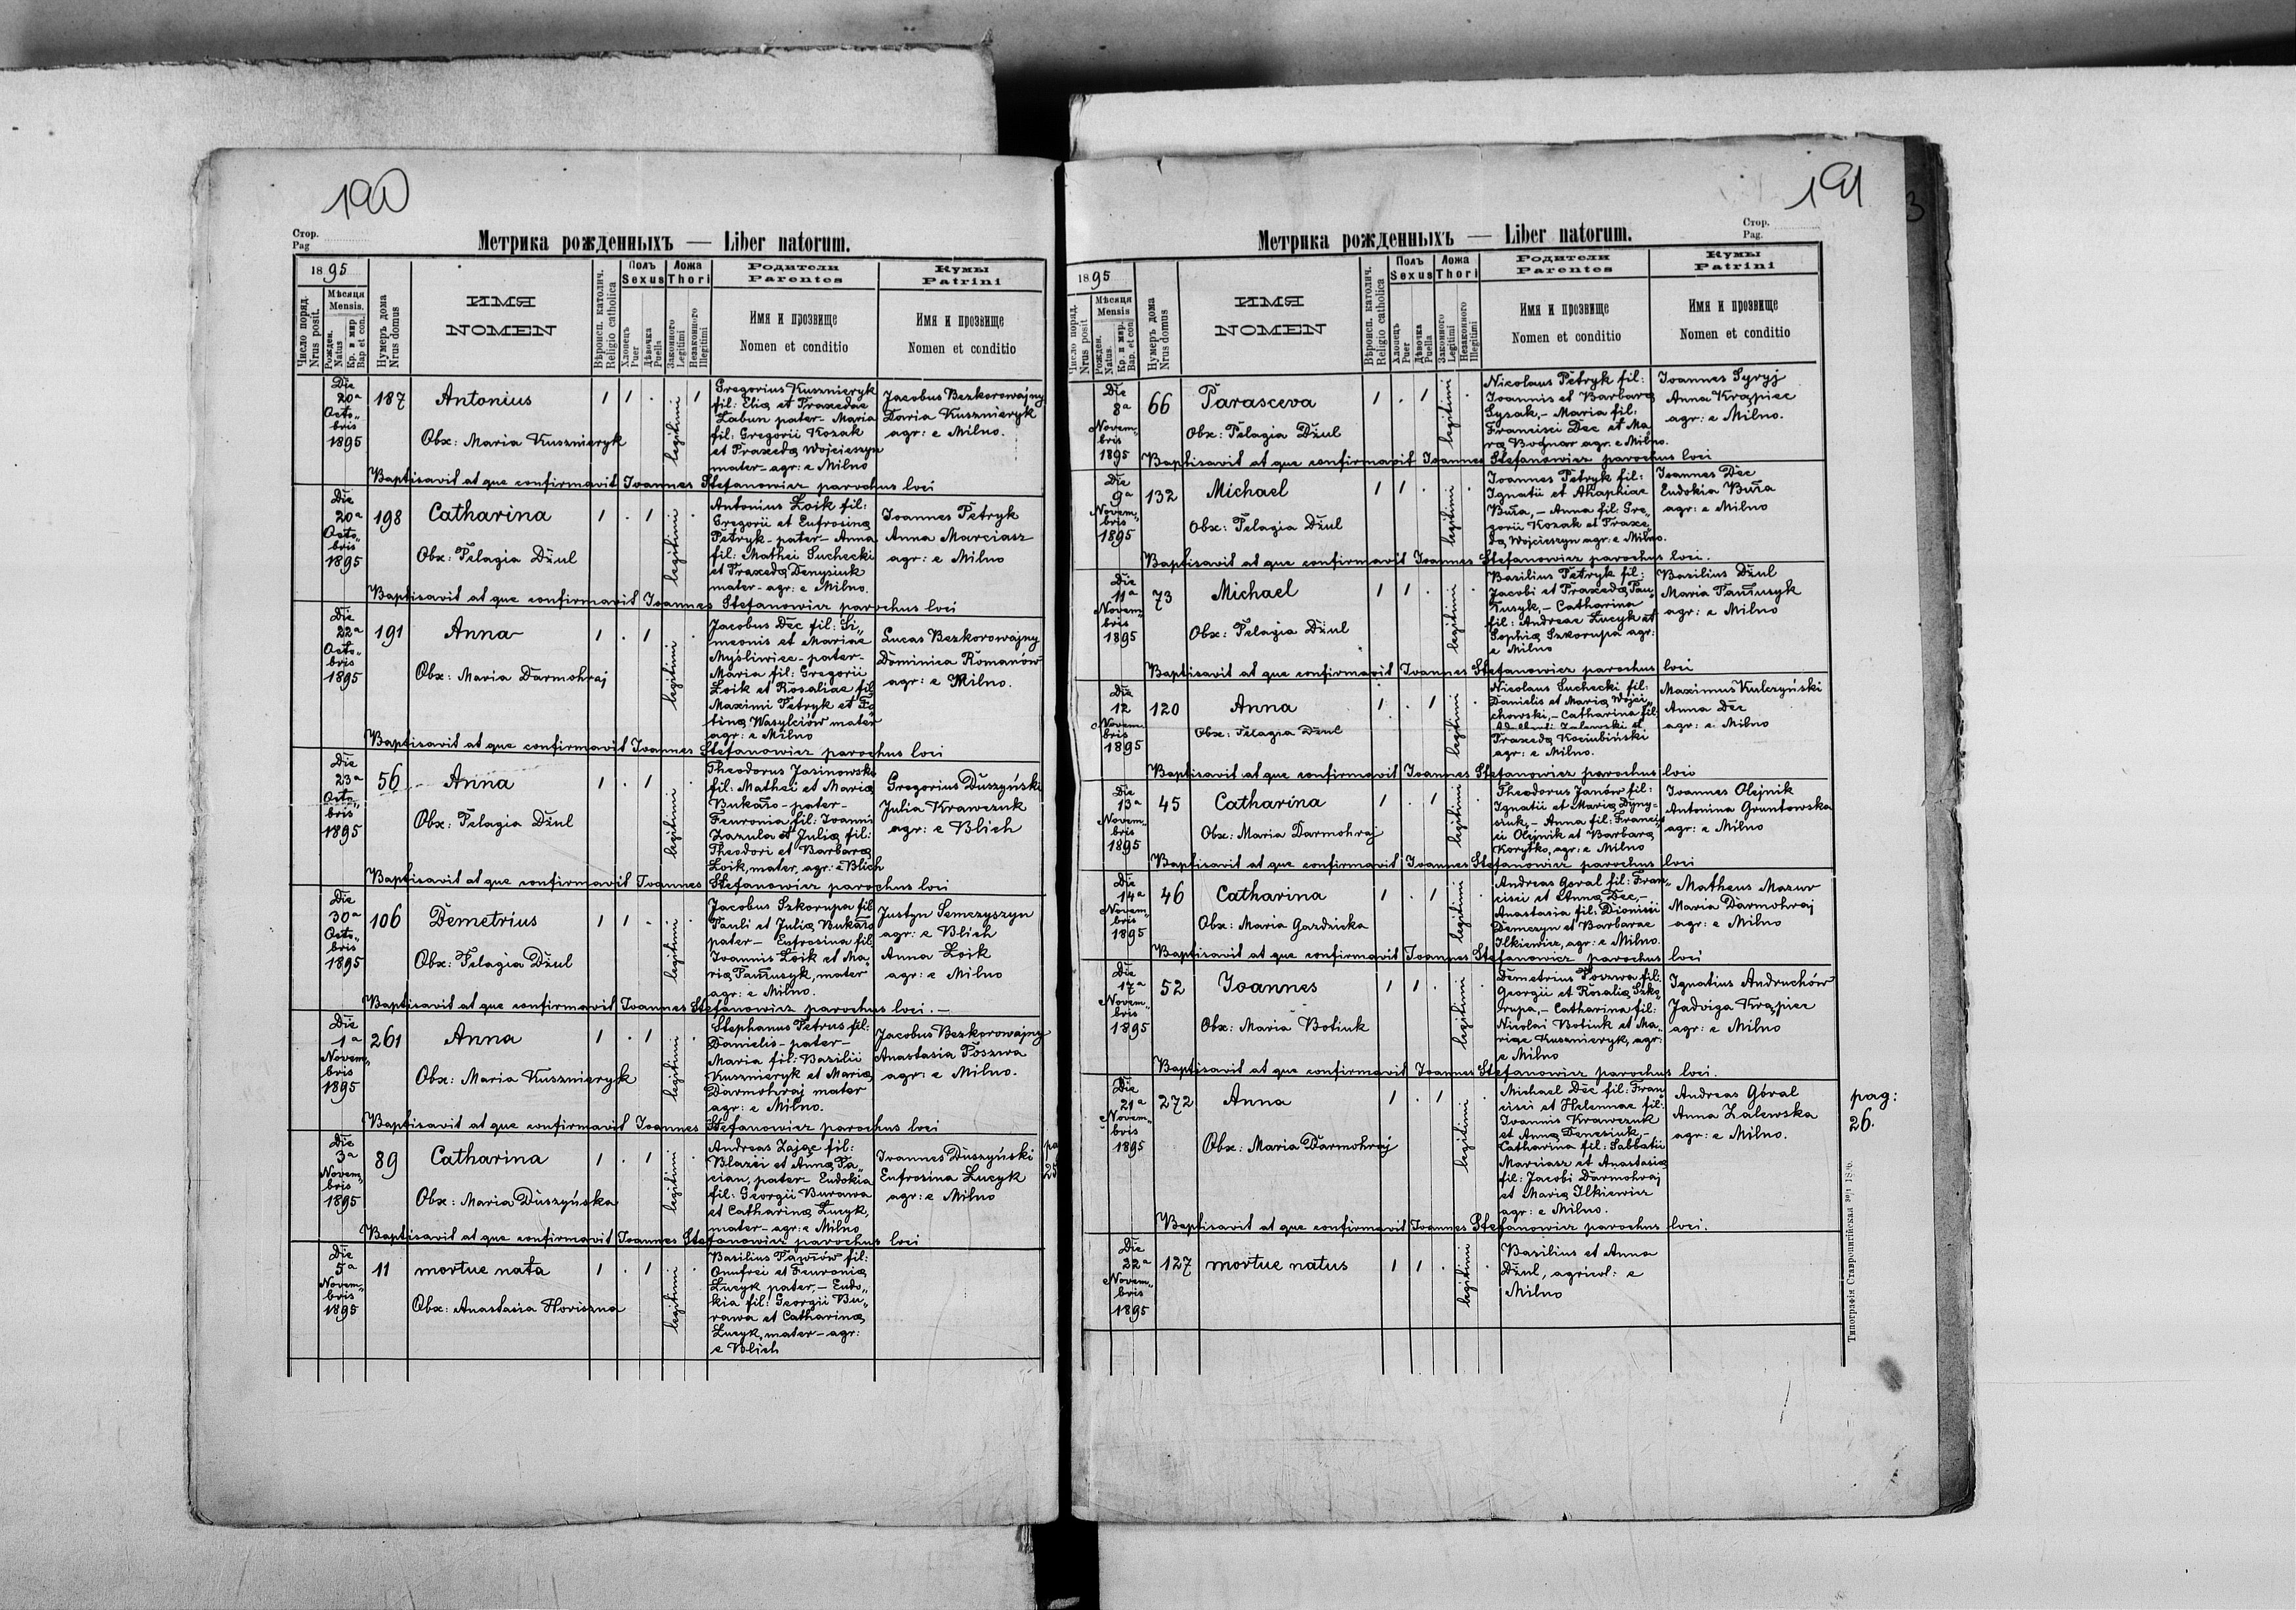 190
Стор.
Pag
Метрика рожденныхъ — Liber natorum.
1895
Число поряд.
Nrus posit.
Мѣсяця
Mensis.
Рожден.
Natus
Кр. и мир
Bap et con.
Нумеръ дома
Nrus domus
ИМЯ
NOMEN
Вѣроисп. католич.
Religio catholica
Полъ
Sexus
Хлопецъ
Puer
Дѣвочка
Puella
Ложа
Thori
Законного
Legitimi
Незаконного
Illegitimi
Родители
Parentes
Имя и прозвище
Nomen et conditio
Кумы
Patrini
Имя и прозвище
Nomen et conditio
Die
20a
Octo„
bris
1895
187
Antonius
Obx: Maria Kusznieryk
1 1 . 1
legitimi
Gregorius Kusznieryk
fil: Elią et Praxedae
Łabun pater- Maria
fil: Gregorii Kozak
et Praxedą Wojcieszyn
mater- agr: e Milno
Jacobus Bezkorowajny
Daria Kusznieryk
agr: e Milno.
Baptisavit at que confirmavit Ioannes Stefanowicz parochus loci
Die
20a
Octo„
bris
1895
198
Catharina
Obx: Pelagia Dżul
1 . 1 .
legitimi
Antonius Łoik fil:
Gregorii et Eufrosiną
Petryk- pater- Anna
fil: Mathei Suchecki
et Praxedą Denysiuk
mater- agr: e Milno.
Ioannes Petryk
Anna Marciasz
agr: e Milno
Baptisavit at que confirmavit Ioannes Stefanowicz parochus loci
Die
22a
Octo„
bris
1895
191
Anna
Obx: Maria Darmohraj
1 . 1 .
legitimi
Jacobus Dec fil: Si„
meonis et Mariae
Myśliwiec- pater-
Maria fil: Gregorii
Łoik et Rosaliae fil:
Maximi Petryk et Fo
tiną Wasylciów mater
agr: e Milno
Lucas Bezkorowajny
Dominica Romanów
agr: e Milno.
Baptisavit at que confirmavit Ioannes Stefanowicz parochus loci
Die
23a
Octo„
bris
1895
56
Anna
Obx: Pelagia Dżul
1 . 1 .
legitimi
Theodorus Jasinowski
fil: Mathei et Marią
Bukało- pater-
Feuronia fil: Ioanni
Zazula et Julią fil:
Theodori et Barbarą
Łoik, mater, agr: e Blich
Gregorius Duszyński
Julia Krawczuk
agr: e Blich
Baptisavit at que confirmavit Ioannes Stefanowicz parochus loci
Die
30a
Octo„
bris
1895
106
Demetrius
Obx: Pelagia Dżul
1 1 . .
legitimi
Jacobus Szkorupa fil
Pauli et Julią Bukało
pater- Eufrosina fil,
Ioannis Łoik et Ma„
rią Pańusyk, mater
agr: e Milno.
Justyn Semczyszyn
agr: e Blich
Anna Łoik
agr: e Milno
Baptisavit at que confirmavit Ioannes Stefanowicz parochus loci. —
Die
1a
Novem„
bris
1895
261
Anna
Obx: Maria Kusznieryk
1 . 1 .
legitimi
Stephanus Petrus fil:
Danielis- pater-
Maria fil: Bazilii
Kusznieryk et Marią
Darmohraj mater
agr: e Milno.
Jacobus Bezkorowajny
Anastasia Poszwa
agr: e Milno.
Baptisavit at que confirmavit Ioannes Stefanowicz parochus loci
Die
3a
Novem„
bris
1895
89
Catharina
Obx: Maria Duszyńska
1 . 1 .
legitimi
Andreas Zając fil:
Blazii et Anną Pa„
cian, pater- Eudokia
fil: Georgii Burawa
et Cathariną Łucyk,
mater- agr: e Milno
Ioannes Duszyński
Eufrosina Łucyk
agr: e Milno
pa
25
Baptisavit at que confirmavit Ioannes Stefanowicz parochus loci
Die
5a
Novem„
bris
1895
11
mortue nata
Obx: Anastasia Horiszna
1 . 1 .
legitimi
Basilius Pawlów fil:
Onufrei et Feuronią
Łucyk pater,- Eudo„
kia fil: Georgii Bu„
rawa et Catharina,
Łucyk, mater- agr:
e Blich
191
3
Стор.
Pag.
Метрика рожденныхъ — Liber natorum.
1895
Число поряд.
Nrus posit
Мѣсяця
Mensis
Рожден.
Natus.
Кр. и мир.
Bap. et con
Нумеръ дома
Nrus domus
ИМЯ
NOMEN
Вѣроисп. католич.
Religio catholica
Полъ
Sexus
Хлопецъ
Puer
Дѣвочка
Puella
Ложа
Thori
Законного
Legitimi
Незаконного
Illegitimi
Родители
Parentes
Имя и прозвище
Nomen et conditio
Кумы
Patrini
Имя и прозвище
Nomen et conditio
Die
8a
Novem„
bris
1895
66
Parasceva
Obx: Pelagia Dżul
1 . 1 .
legitimi
Nicolaus Petryk fil:
Ioannis et Barbarą
Sysak,- Maria fil:
Francisci Dec et Ma„
rą Bodnar agr: e Milno.
Ioannes Syryj
Anna Krąpiec
agr: e Milno.
Baptisavit at que confirmavit Ioannes Stefanowicz parochus loci
Die
9a
Novem„
bris
1895
132
Michael
Obx: Pelagia Dżul
1 1 . .
legitimi
Ioannes Petryk fil:
Ignatii et Ahaphiae
Buła,- Anna fil: Gre„
gorii Kozak et Praxe„
dą Wojcieszyn agr: e Milno.
Ioannes Dec
Eudokia Buła
agr: e Milno
Baptisavit at que confirmavit Ioannes Stefanowicz parochus loci.
Die
11a
Novem„
bris
1895
73
Michael
Obx: Pelagia Dżul
1 1 . .
legitimi
Basilius Petryk fil:
Jacobi et Praxedą Pań„
kusyk,- Catharina
fil: Andreae Łucyk et
Sophią Szkorupa agr:
e Milno
Bazilius Dżul
Maria Pańusyk
agr: e Milno
Baptisavit at que confirmavit Ioannes Stefanowicz parochus loci
Die
12
Novem„
bris
1895
120
Anna
Obx: Pelagia Dżul
1 . 1 .
legitimi
Nicolaus Suchecki fil:
Danielis et Marią Wojci„
chowski,- Catharina fil:
Adalberti Zalewski et
Praxedą Kociubiński
agr: e Milno.
Maximus Kulczyński
Anna Dec
agr: e Milno
Baptisavit at que confirmavit Ioannes Stefanowicz parochus loci
Die
13a
Novem„
bris
1895
45
Catharina
Obx: Maria Darmohraj
1 . 1 .
legitimi
Theodorus Janów fil:
Ignatii et Marią Dyny=
siuk,- Anna fil: Francis
ci Olejnik et Barbarą
Korytko, agr: e Milno
Ioannes Olejnik
Antonina Gruntowska
agr: e Milno
Baptisavit at que confirmavit Ioannes Stefanowicz parochus loci
Die
14a
Novem„
bris
1895
46
Catharina
Obx: Maria Gazdzicka
1 . 1 .
legitimi
Andreas Goral fil: Fran„
cisci et Anną Dec,-
Anastasia fil: Dionisii
Demczyn et Barbarae
Ilkiewicz, agr: e Milno.
Matheus Mazur
Maria Darmohraj
agr: e Milno
Baptisavit at que confirmavit Ioannes Stefanowicz parochus loci
Die
17a
Novem„
bris
1895
52
Ioannes
Obx: Maria Botiuk
1 1 . .
legitimi
Demetrius Poszwa fil:
Georgii et Rosalią Szko
rupa,- Catharina fil:
Nicolai Botiuk et Ma„
riae Kusznieryk, agr:
e Milno
Ignatius Andruchów
Jadviga Krąpiec
agr: e Milno
Baptisavit at que confirmavit Ioannes Stefanowicz parochus loci.
Die
21a
Novem„
bris
1895
272
Anna
Obx: Maria Darmohraj
1 . 1 .
legitimi
Michael Dec fil: Fran„
cisci et Helennae fil:
Ioannis Krawczuk
et Anną Denesiuk,-
Catharina fil: Sabbatii
Marciasz et Anastasią
fil: Jacobi Darmohraj
et Marią Ilkiewicz
agr: e Milno.
Andreas Góral
Anna Zalewska
agr: e Milno.
pag:
26.
Baptisavit at que confirmavit Ioannes Stefanowicz parochus loci.
Die
22a
Novem„
bris
1895
127
mortue natus
1 1 . .
legitimi
Basilius et Anna
Dżul, agricol: e
Milno
Типографія Ставропигійская